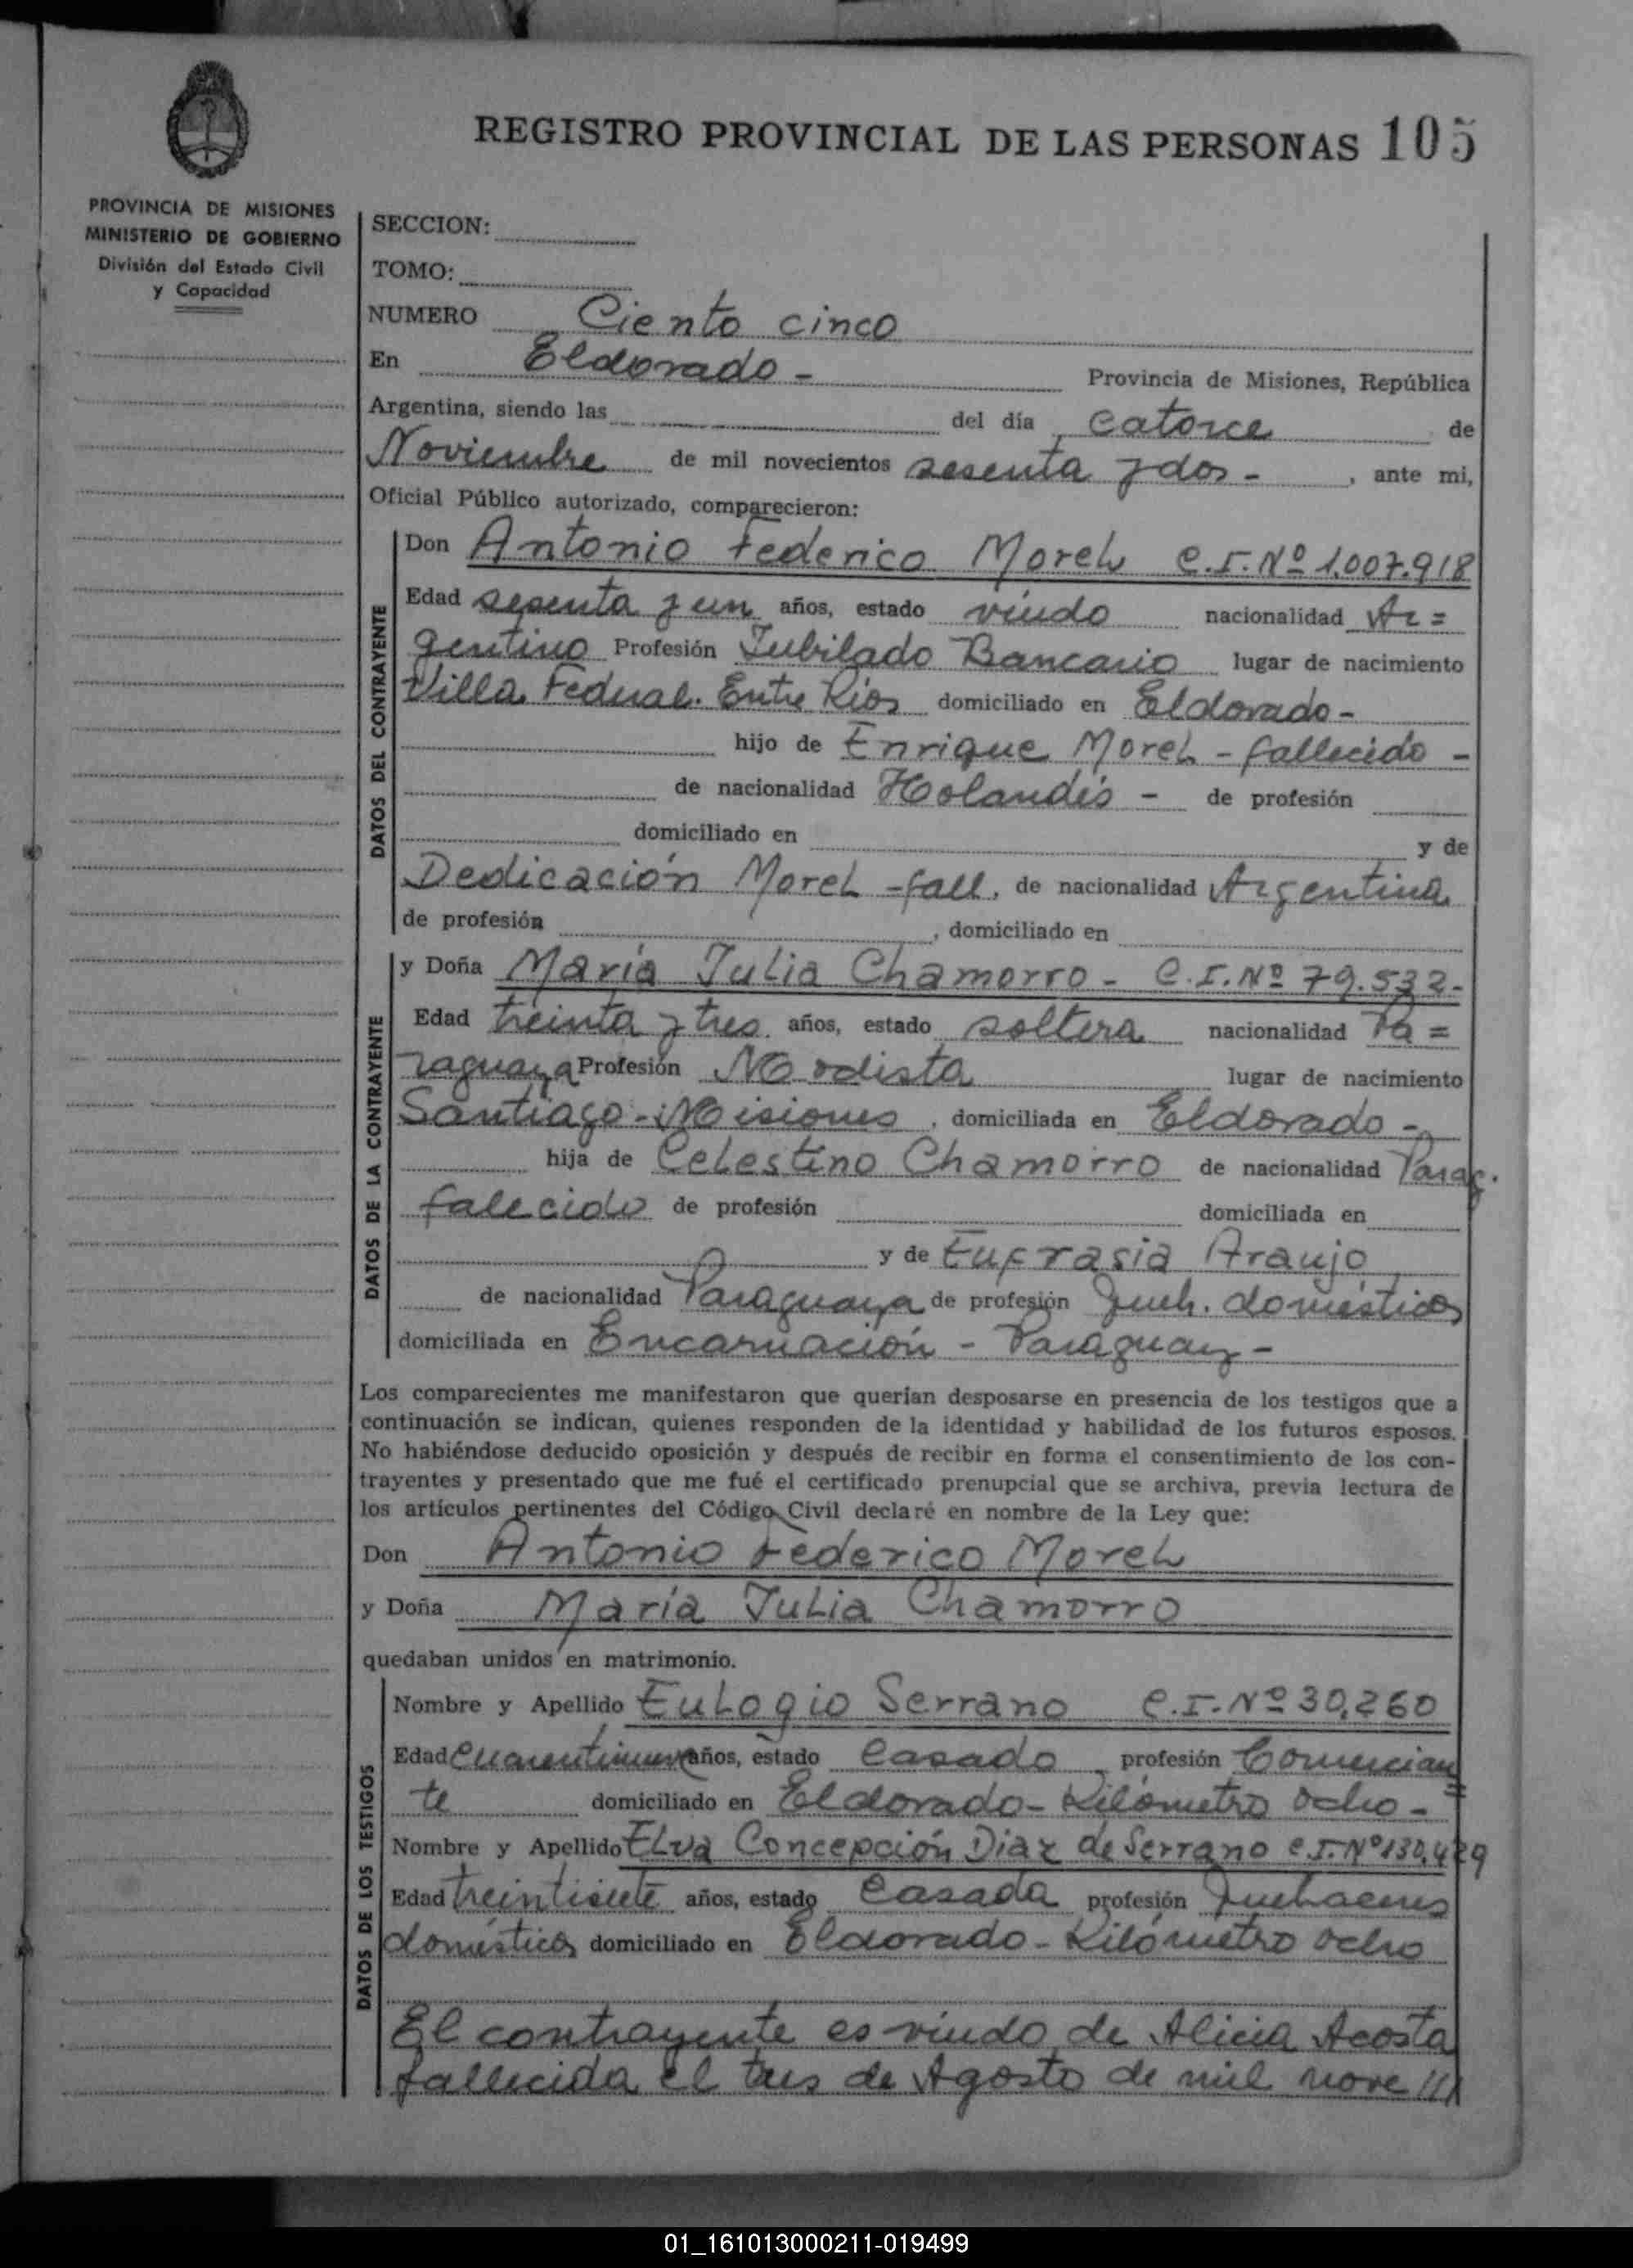 REGISTRO PROVINCIAL DE LAS PERSONAS 105
PROVINCIA DE MISIONES
MINISTERIO DE GOBIERNO
División del Estado Civil
y Capacidad
SECCION:
TOMO:
NUMERO Ciento cinco
En Eldorado - Provincia de Misiones, República
Argentina, siendo las del día catorce de
Noviembre de mil novecientos sesenta y dos - , ante mi,
Oficial Público autorizado, comparecieron:
DATOS DEL CONTRAYENTE
Don Antonio Federico Morel C.I. Nº 1.007.918
Edad sesenta y un años, estado viudo nacionalidad Ar=
gentino Profesión Jubilado Bancario lugar de nacimiento
Villa Federal. Entre Ríos domiciliado en Eldorado-
hijo de Enrique Morel - fallecido -
de nacionalidad Holandés - de profesión
domiciliado en y de
Dedicación Morel - fall. de nacionalidad Argentina
de profesión , domiciliado en
DATOS DE LA CONTRAYENTE
y Doña María Julia Chamorro - C.I. Nº 79.532-
Edad treinta y tres años, estado soltera nacionalidad Pa=
raguaya Profesión Modista lugar de nacimiento
Santiago - Misiones , domiciliada en Eldorado -
hija de Celestino Chamorro de nacionalidad Parag.
falecido de profesión domiciliada en
y de Eufrasia Araujo
de nacionalidad Paraguaya de profesión Queh. domésticos
domiciliada en Encarnación - Paraguay -
Los comparecientes me manifestaron que querían desposarse en presencia de los testigos que a
continuación se indican, quienes responden de la identidad y habilidad de los futuros esposos.
No habiéndose deducido oposición y después de recibir en forma el consentimiento de los con-
trayentes y presentado que me fué el certificado prenupcial que se archiva, previa lectura de
los artículos pertinentes del Código Civil declaré en nombre de la Ley que:
Don Antonio Federico Morel
y Doña María Julia Chamorro
quedaban unidos en matrimonio.
DATOS DE LOS TESTIGOS
Nombre y Apellido Eulogio Serrano C.I. Nº 30.260
Edad cuarentinueve años, estado casado profesión Comercian=
te domiciliado en Eldorado - Kilómetro ocho -
Nombre y Apellido Elva Concepción Diaz de Serrano C.I. Nº 130.429
Edad treintisiete años, estado casada profesión Quehaceres
domésticos domiciliado en Eldorado - Kilómetro ocho
El contrayente es viudo de Alicia Acosta
fallecida el tres de Agosto de mil nove ///
01_161013000211-019499